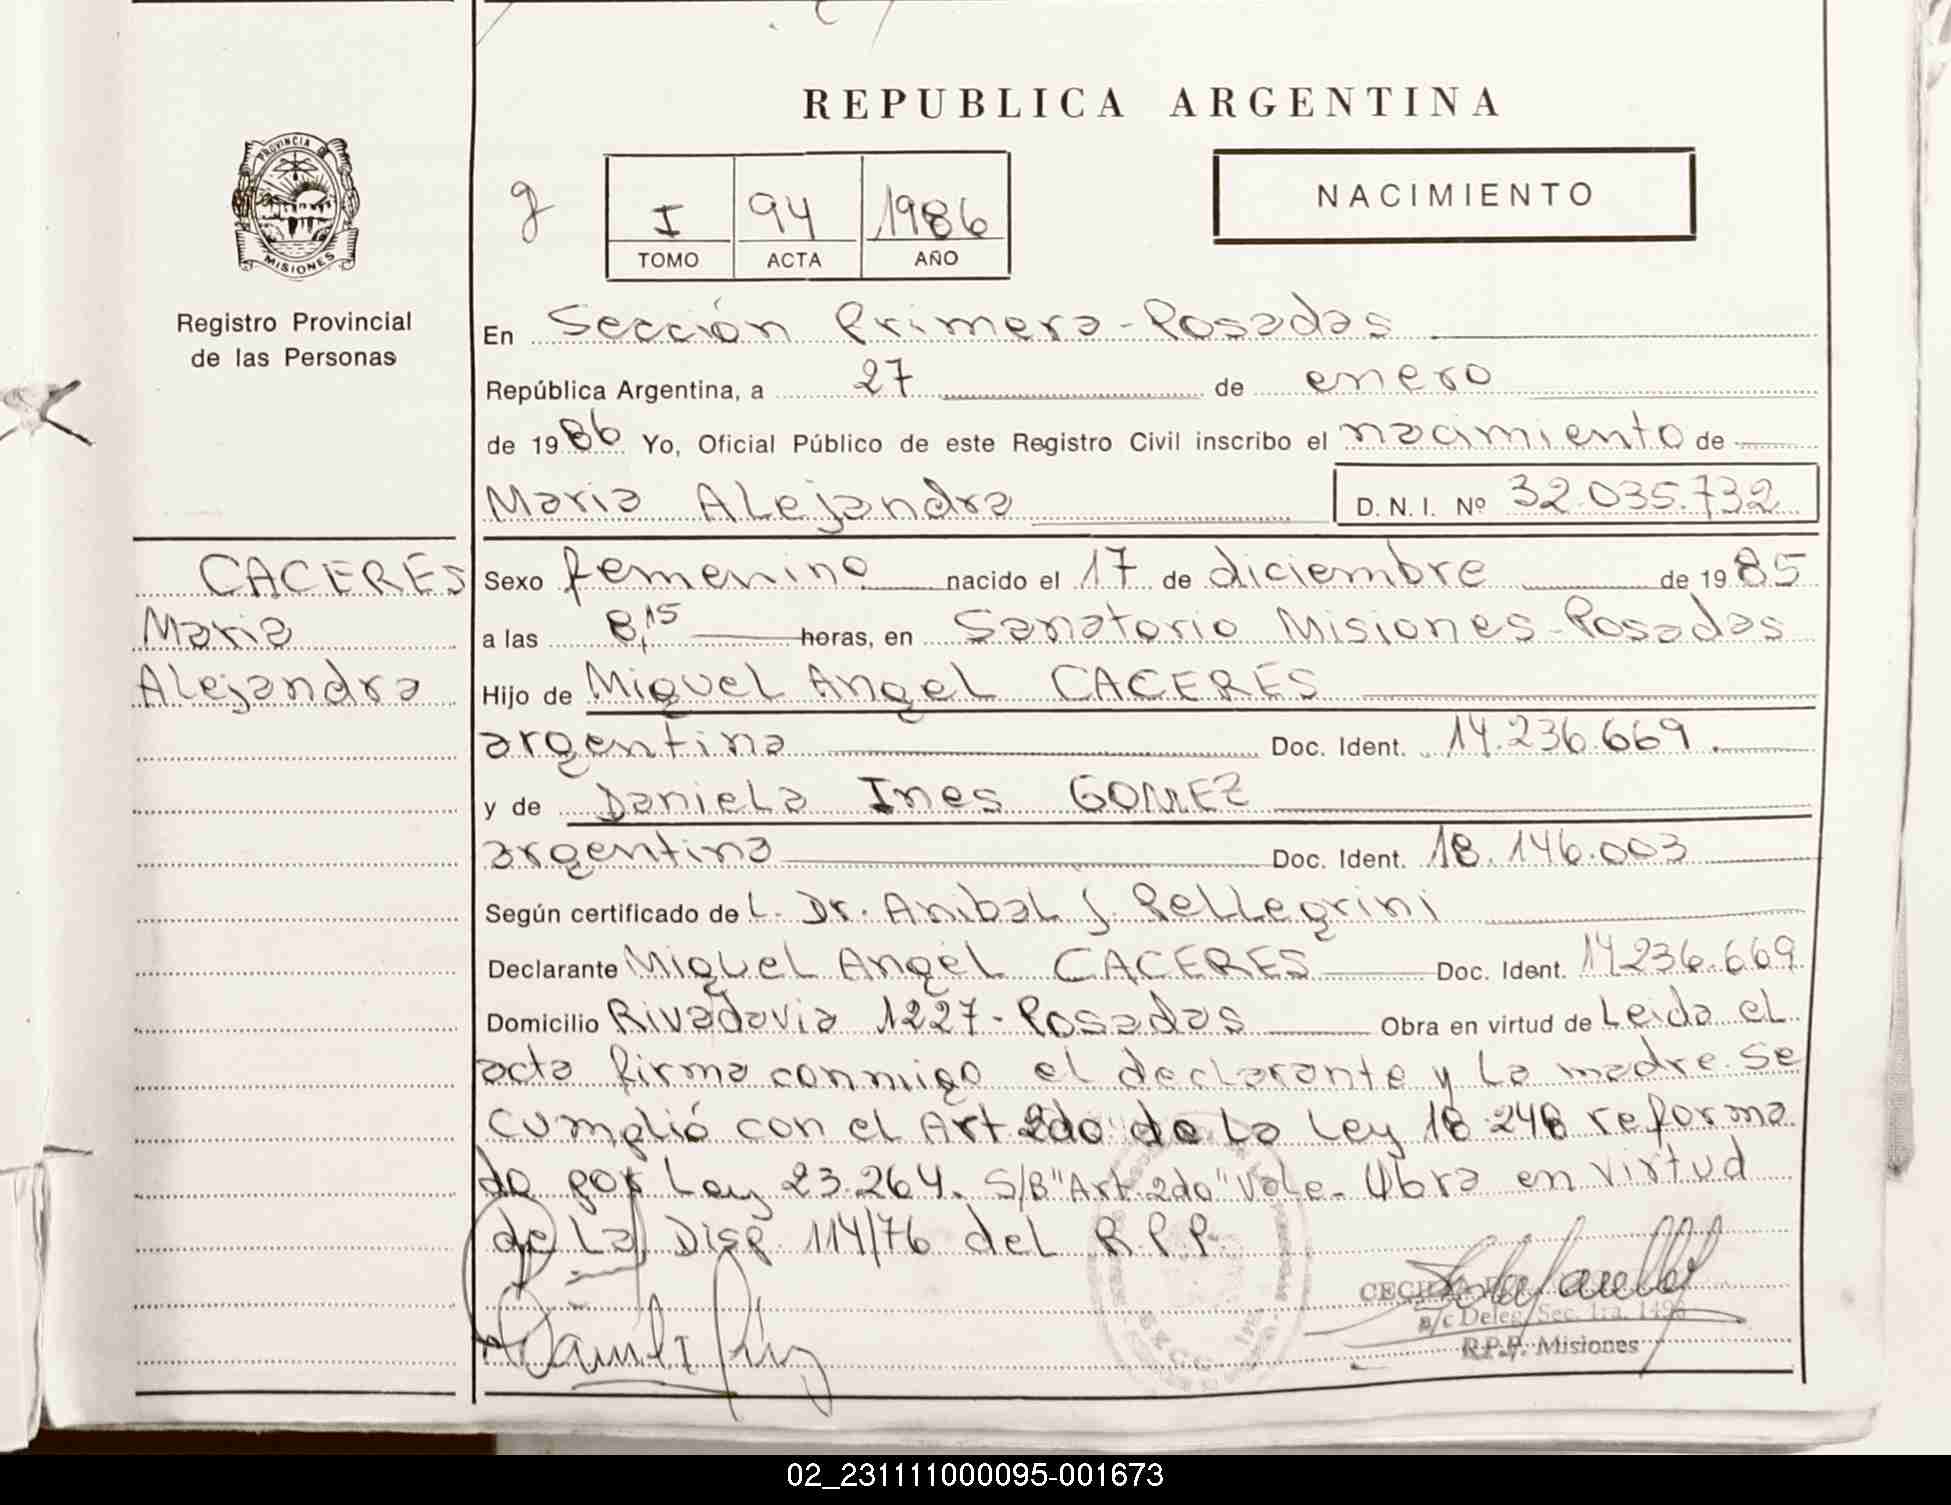 REPUBLICA ARGENTINA
PROVINCIA DE
MISIONES
Registro Provincial
de las Personas
g
I 94 1986
TOMO ACTA AÑO
NACIMIENTO
En Sección Primera - Posadas
República Argentina, a 27 de enero
de 1986 Yo, Oficial Público de este Registro Civil inscribo el nacimiento de
Maria Alejandra D. N. I. Nº 32.035.732
CACERES
Maria
Alejandra
Sexo femenino nacido el 17 de diciembre de 1985
a las 8,15 horas, en Sanatorio Misiones - Posadas
Hijo de Miguel Angel CACERES
argentina Doc. Ident. 14.236.669
y de Daniela Ines GOMEZ
argentina Doc. Ident. 18.146.003
Según certificado de L. Dr. Anibal J. Pellegrini
Declarante Miguel Angel CACERES Doc. Ident. 14.236.669
Domicilio Rivadavia 1227 - Posadas Obra en virtud de Leida el
acta firma conmigo el declarante y la madre. Se
cumplió con el Art 2do de la Ley 18.248 reforma
do por Ley 23.264. S/B "Art. 2do" Vale. Obra en virtud
de la Disp. 114/76 del R.P.P.
a/c Deleg. Sec. 1ra.
R.P.P. Misiones
02_231111000095-001673